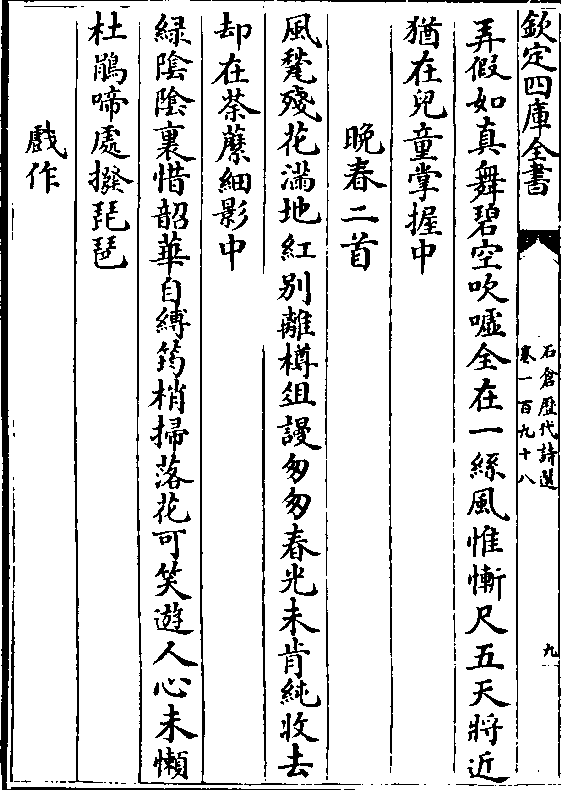 欽定四庫全書
石倉歷代詩選
卷一百九十八
九
弄假如真舞碧空吹噓全在一絲風惟慚尺五天將近
猶在兒童掌握中
晚春二首
風凳殘花滿地紅別離樽俎謾匆匆春光未肯純收去
却在荼蘼細影中
緑陰陰裏惜韶華自縛筠梢掃落花可笑遊人心未懶
杜鵑啼處撥琵琶
戲作